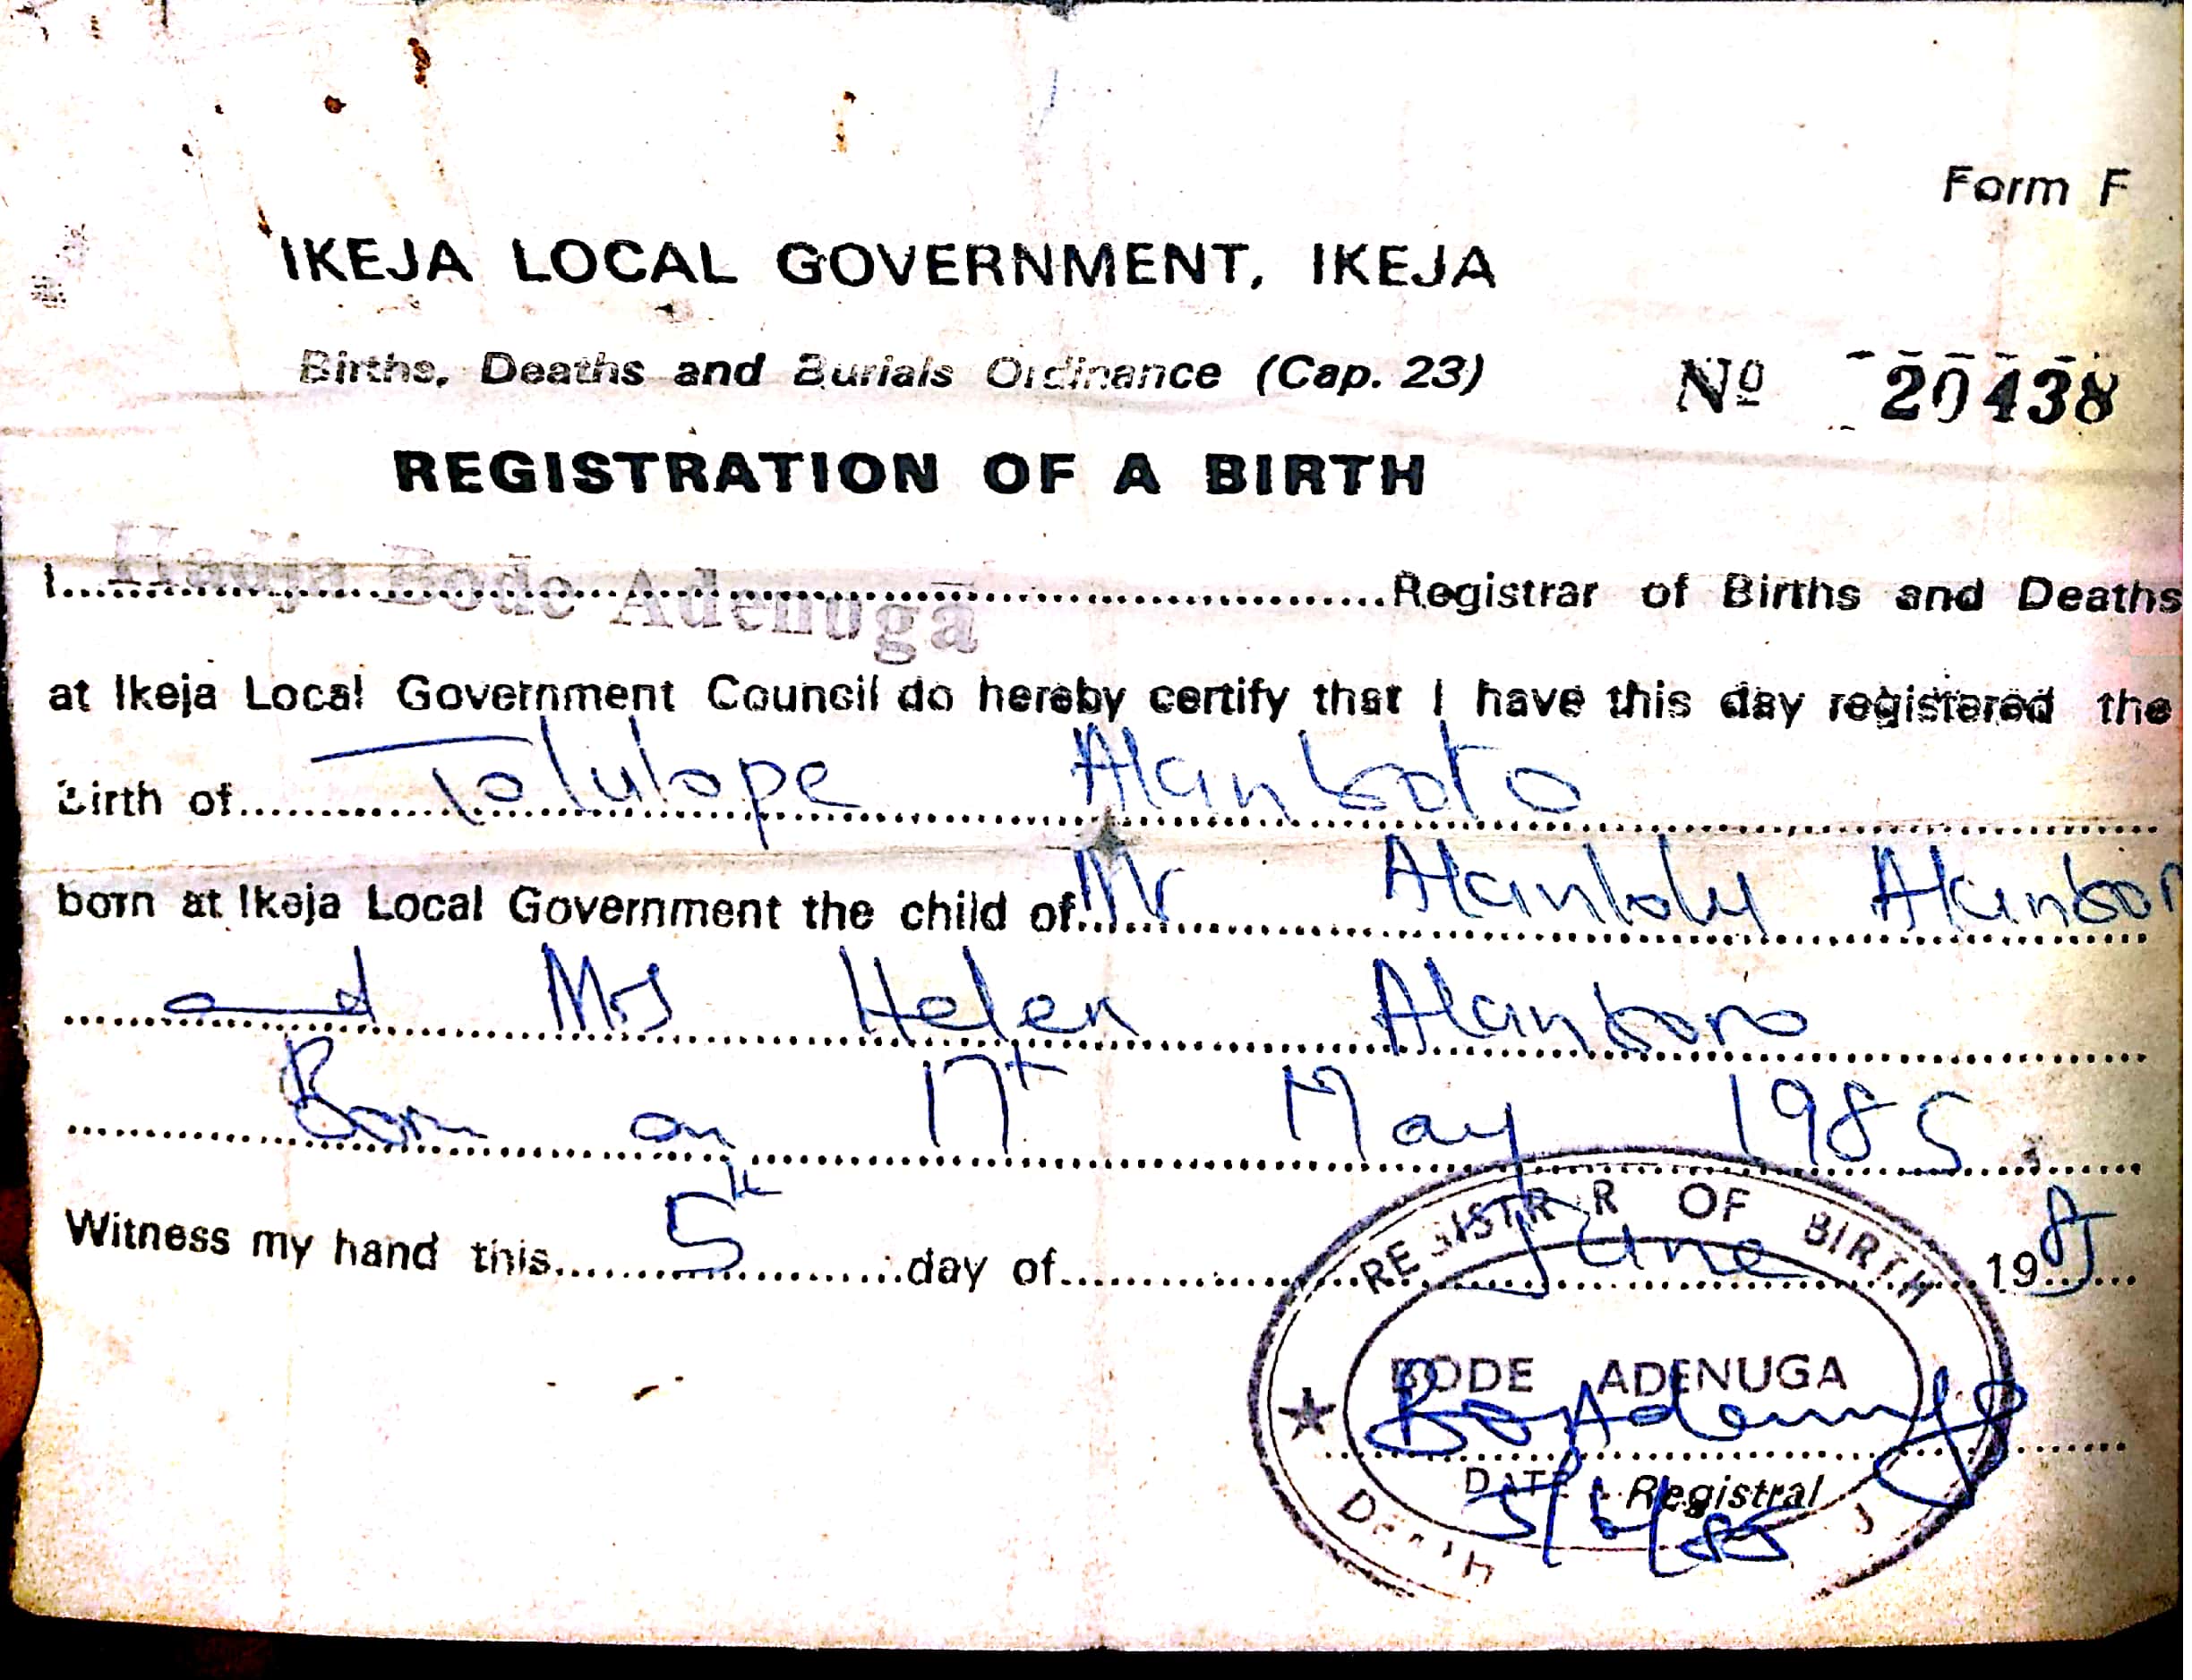 Form F
IKEJA LOCAL GOVERNMENT, IKEJA
Births, Deaths and Burials Ordinance (Cap. 23)
Nº 20438
REGISTRATION OF A BIRTH
I.......... Bode Adenuga ..........Registrar of Births and Deaths
at Ikeja Local Government Council do hereby certify that I have this day registered the
Birth of.......... Tolulope
born at Ikeja Local Government the child of.... Mr
and Mrs Helen
Born on 17th May 1985
Witness my hand this.......... 5th ..........day of.......... June ..........1985
REGISTRAR OF BIRTH
BODE ADENUGA
DATE Registral
5/6/85
Death